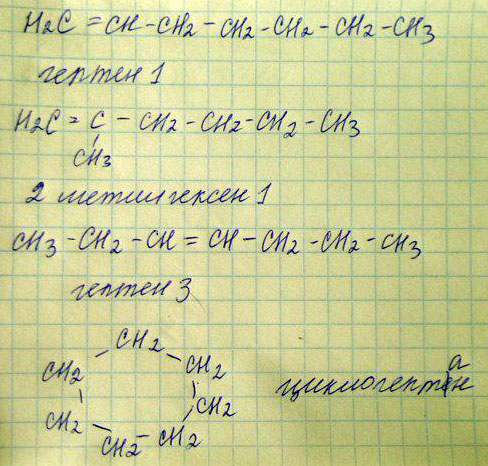 H2C = CH - CH2 - CH2 - CH2 - CH2 - CH3
гептен 1
H2C = C - CH2 - CH2 - CH2 - CH3
CH3
2 метилгексен 1
CH3 - CH2 - CH = CH - CH2 - CH2 - CH3
гептен 3
CH2
CH2 CH2
CH2
CH2
CH2 - CH2
циклогептан